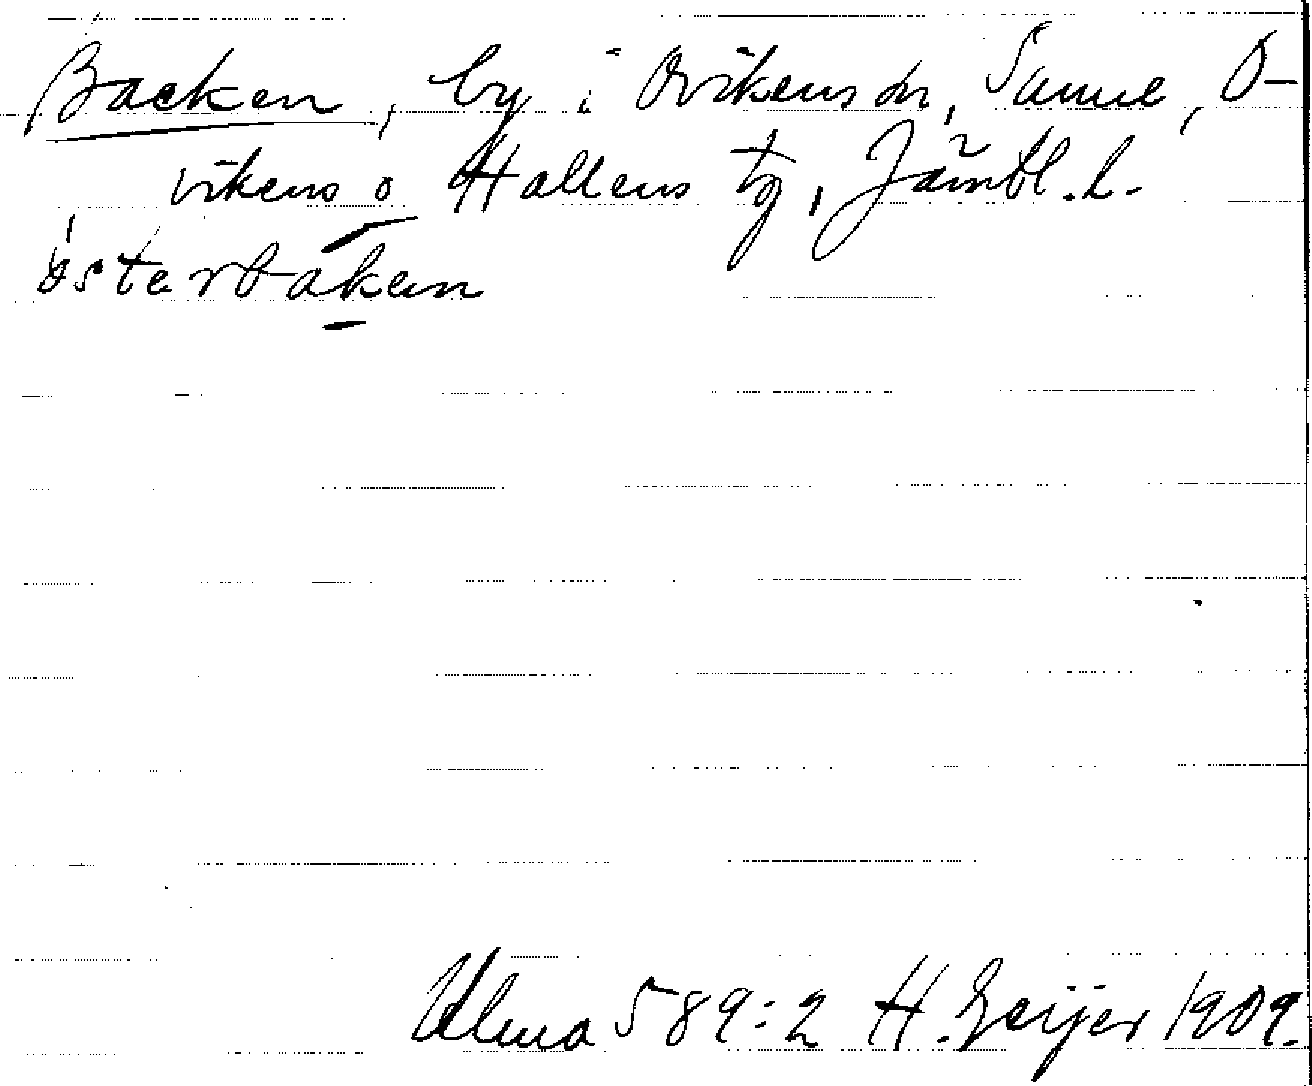 Backen, by i Ovikens sn, Samme, O-
vikens o Hallens tg, Jämtl. l.
österbaken
Ulma 589:2 H. Geijer 1909.